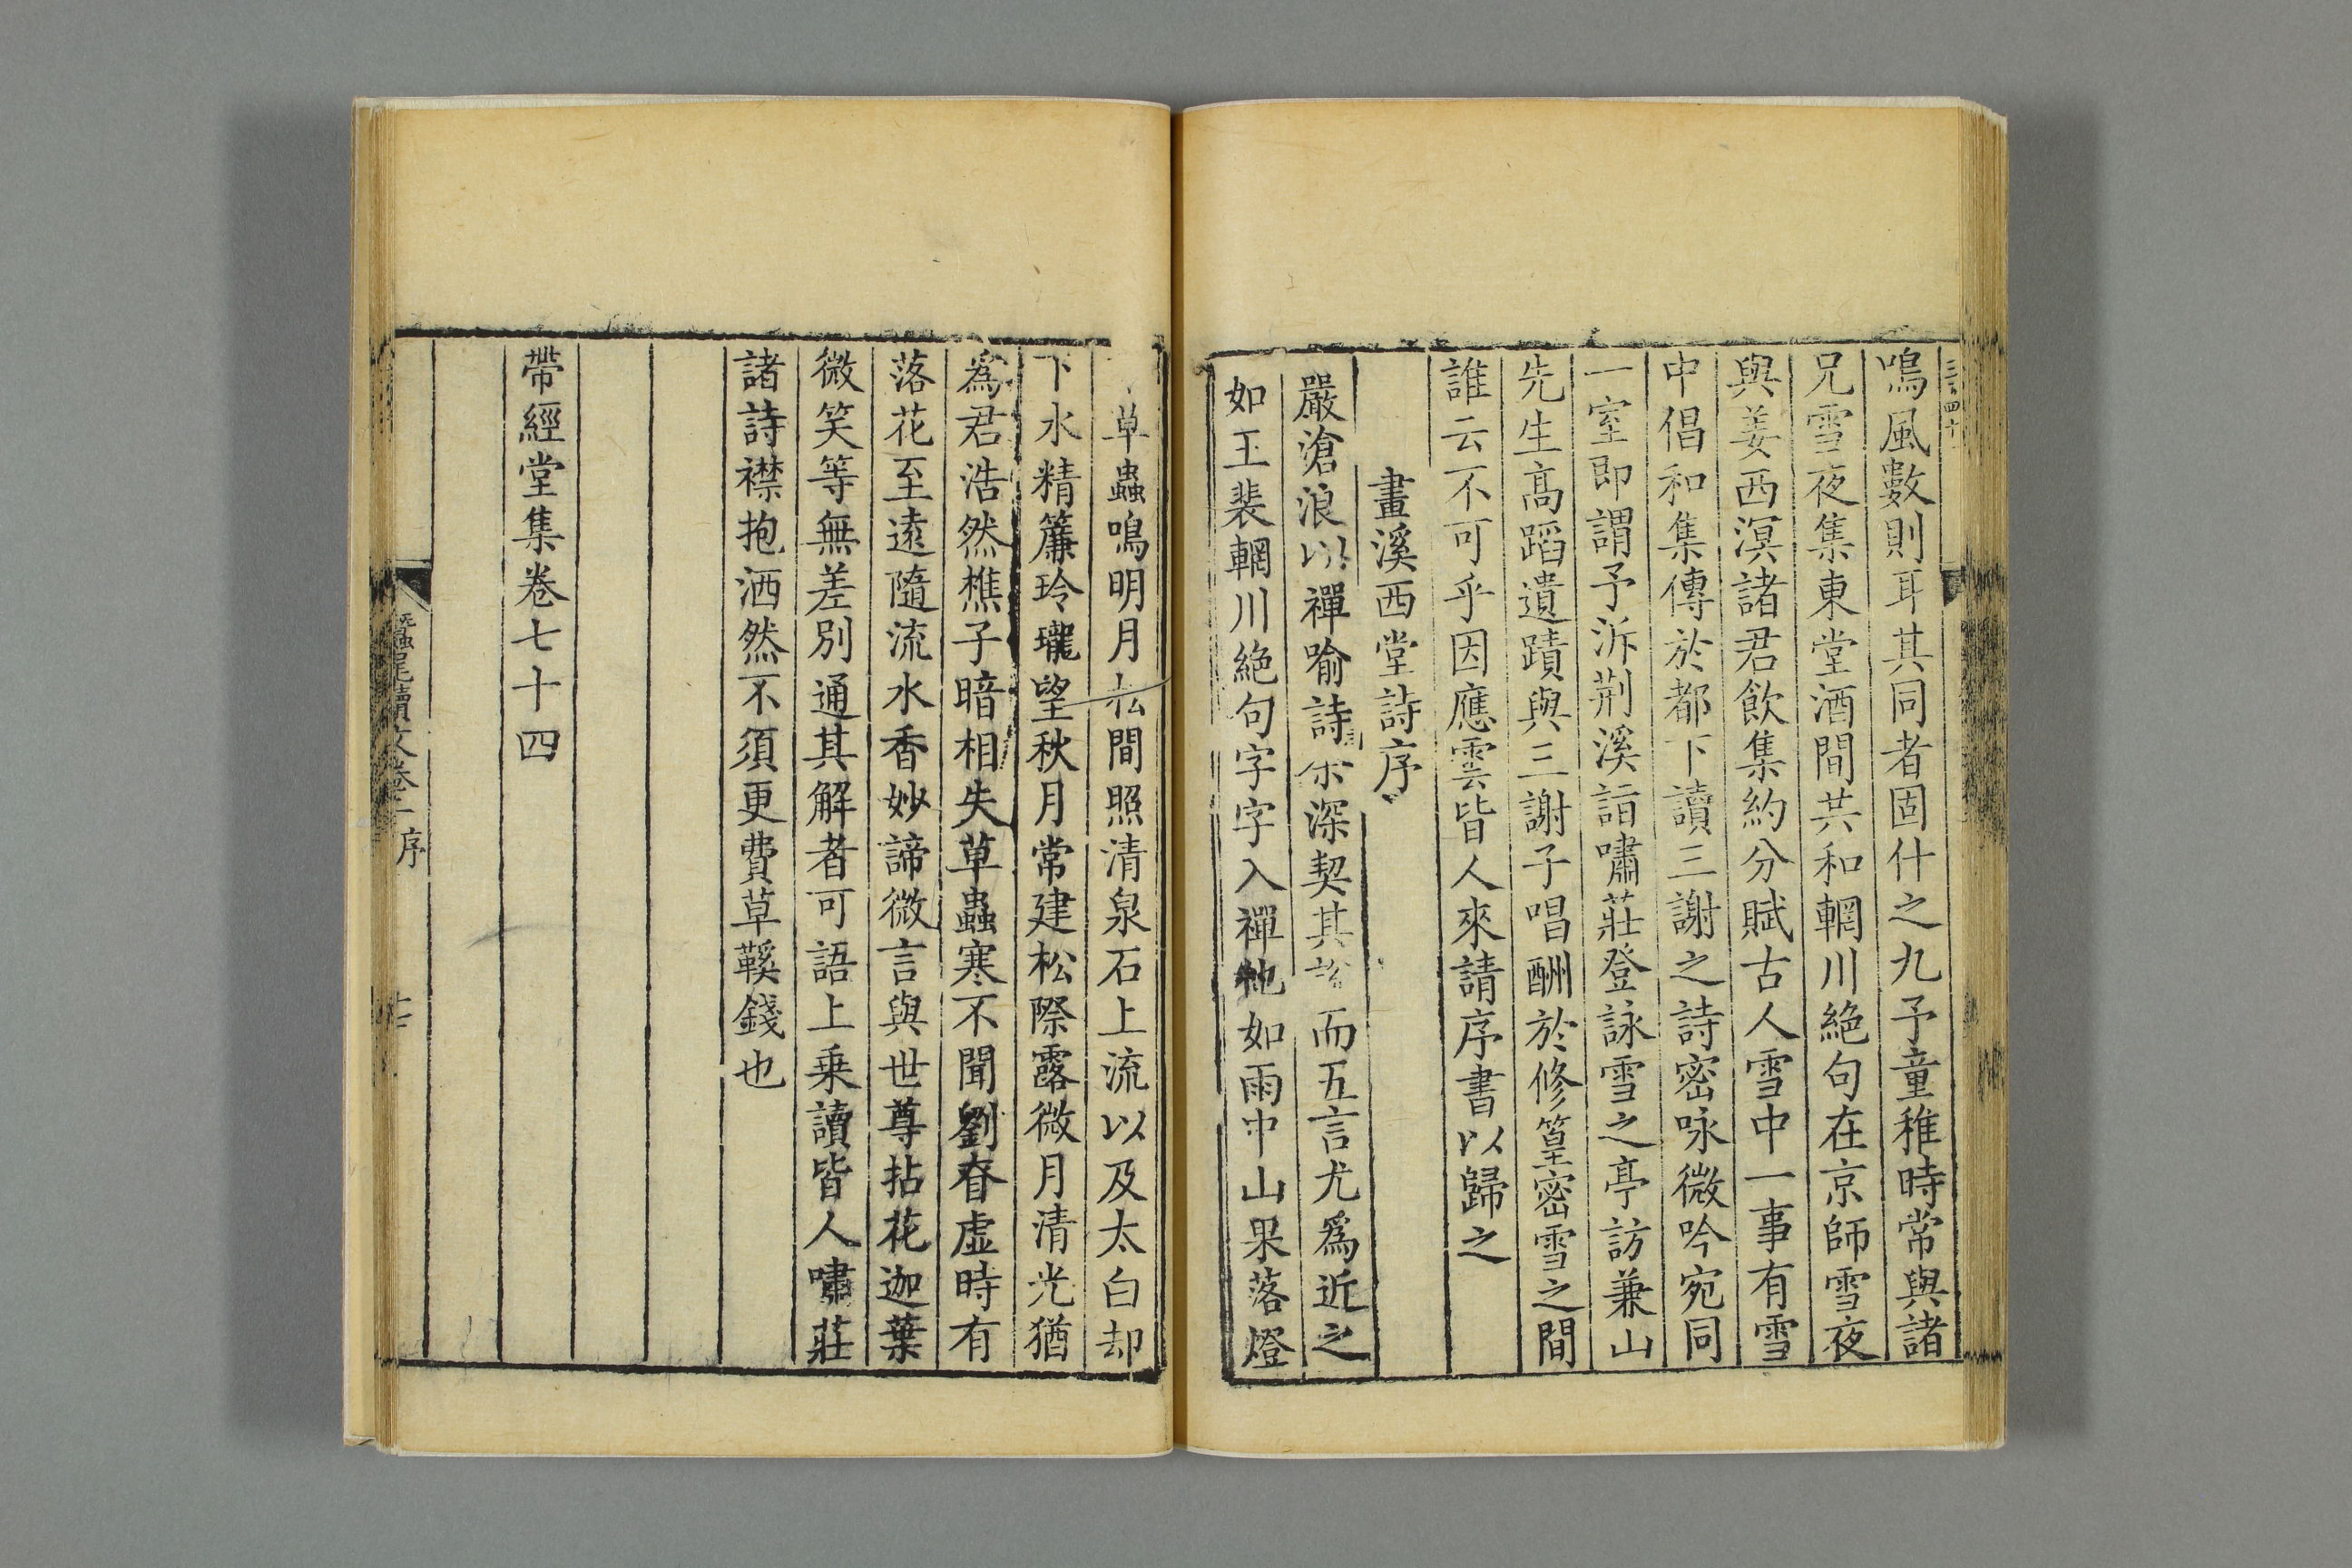 鳴風數則耳其同者固什之九予童稚時常與諸
兄雪夜集東堂酒間共和輞川絶句在京師雪夜
與姜西溟諸君飲集約分賦古人雪中一事有雪
中倡和集傳於都下讀三謝之詩密咏微吟宛同
一室即謂予泝荆溪詣嘯莊登詠雪之亭訪兼山
先生高蹈遺蹟與三謝子唱酬於修篁密雪之間
誰云不可乎因應雲皆人來請序書以歸之
畫溪西堂詩序
嚴滄浪以禪喻詩余深契其而五言尤爲近之
如王裴輞川絶句字字入禪他如雨中山果落燈
草蟲鳴明月松間照清泉石上流以及太白却
下水精簾玲瓏望秋月常建松際露微月清光猶
爲君浩然樵子暗相失草蟲寒不聞劉眘虛時有
落花至遠隨流水香妙諦微言與世尊拈花迦葉
微笑等無差別通其解者可語上乗讀皆人嘯莊
諸詩襟抱洒然不須更費草鞵錢也
帶經堂集卷七十四
蠶尾續文卷二 序